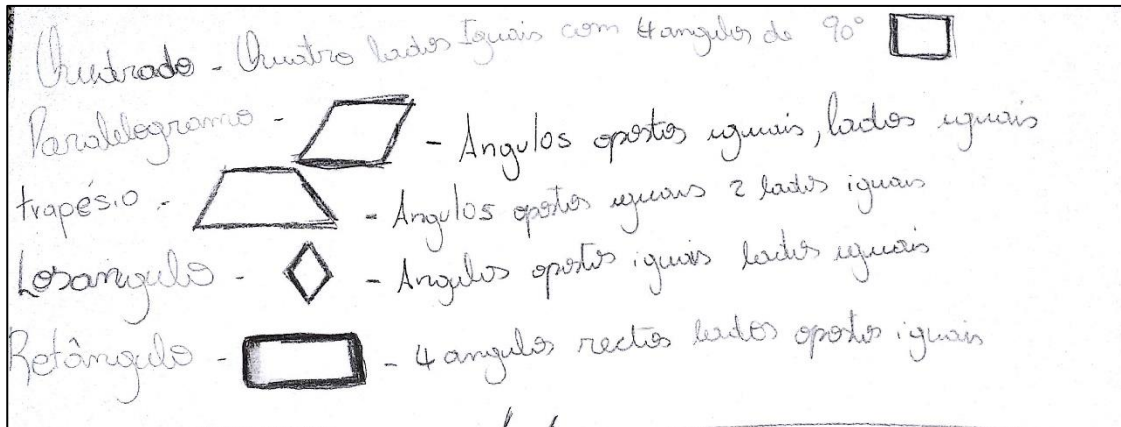 Quadrado - Quatro lados Iguais com 4 angulos de 90°
Paralelogramo - - Angulos opostos iguais, lados iguais
trapésio - - Angulos opostos iguais 2 lados iguais
Losangulo - - Angulos opostos iguais lados iguais
Retângulo - - 4 angulos rectos lados opostos iguais